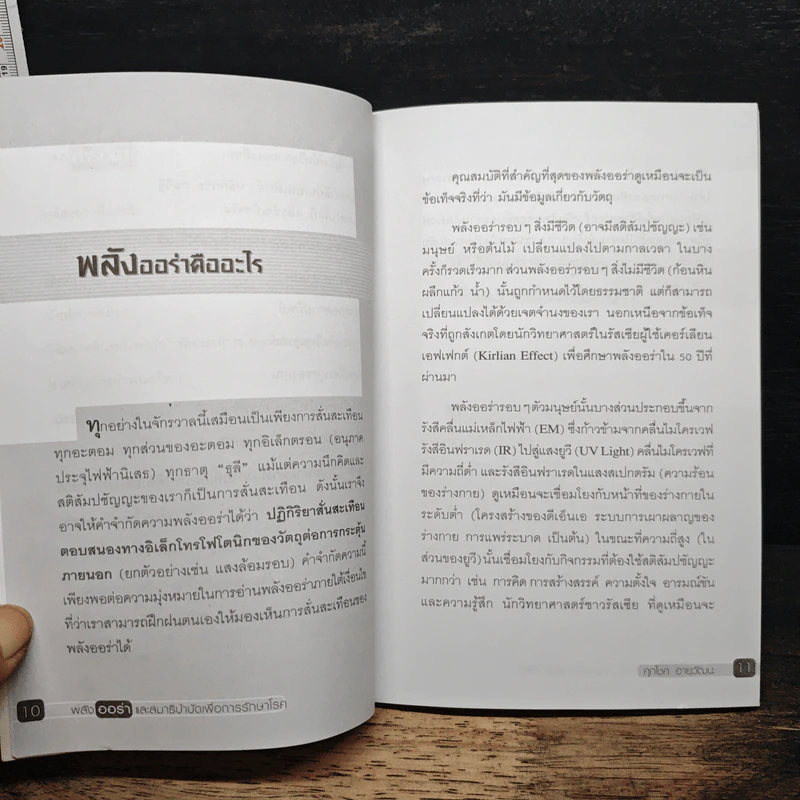 พลังออร่าคืออะไร
ทุกอย่างในจักรวาลนี้เสมือนเป็นเพียงการสั่นสะเทือน
ทุกอะตอม ทุกส่วนของอะตอม ทุกอิเล็กตรอน (อนุภาค
ประจุไฟฟ้านิเสธ) ทุกธาตุ “ธุลี” แม้แต่ความนึกคิดและ
สติสัมปชัญญะของเราก็เป็นการสั่นสะเทือน ดังนั้นเราจึง
อาจให้คำจำกัดความพลังออร่าได้ว่า ปฏิกิริยาสั่นสะเทือน
ตอบสนองทางอิเล็กโทรโฟโตนิกของวัตถุต่อการกระตุ้น
ภายนอก (ยกตัวอย่างเช่น แสงล้อมรอบ) คำจำกัดความนี้
เพียงพอต่อความมุ่งหมายในการอ่านพลังออร่าภายใต้เงื่อนไข
ที่ว่าเราสามารถฝึกฝนตนเองให้มองเห็นการสั่นสะเทือนของ
พลังออร่าได้
10 พลังออร่าและสมาธิบำบัดเพื่อการรักษาโรค
คุณสมบัติที่สำคัญที่สุดของพลังออร่าดูเหมือนจะเป็น
ข้อเท็จจริงที่ว่า มันมีข้อมูลเกี่ยวกับวัตถุ
พลังออร่ารอบๆ สิ่งมีชีวิต (อาจมีสติสัมปชัญญะ) เช่น
มนุษย์ หรือต้นไม้ เปลี่ยนแปลงไปตามกาลเวลา ในบาง
ครั้งก็รวดเร็วมาก ส่วนพลังออร่ารอบๆ สิ่งไม่มีชีวิต (ก้อนหิน
ผลึกแก้ว น้ำ) นั้นถูกกำหนดไว้โดยธรรมชาติ แต่ก็สามารถ
เปลี่ยนแปลงได้ด้วยเจตจำนงของเรา นอกเหนือจากข้อเท็จ
จริงที่ถูกสังเกตโดยนักวิทยาศาสตร์ในรัสเซียผู้ใช้เคอร์เลียน
เอฟเฟกต์ (Kirlian Effect) เพื่อศึกษาพลังออร่าใน 50 ปีที่
ผ่านมา
พลังออร่ารอบๆ ตัวมนุษย์นั้นบางส่วนประกอบขึ้นจาก
รังสีคลื่นแม่เหล็กไฟฟ้า (EM) ซึ่งก้าวข้ามจากคลื่นไมโครเวฟ
รังสีอินฟราเรด (IR) ไปสู่แสงยูวี (UV Light) คลื่นไมโครเวฟที่
มีความถี่ต่ำ และรังสีอินฟราเรดในแสงสเปกตรัม (ความร้อน
ของร่างกาย) ดูเหมือนจะเชื่อมโยงกับหน้าที่ของร่างกายใน
ระดับต่ำ (โครงสร้างของดีเอ็นเอ ระบบการเผาผลาญของ
ร่างกาย การแพร่ระบาด เป็นต้น) ในขณะที่ความถี่สูง (ใน
ส่วนของยูวี) นั้นเชื่อมโยงกับกิจกรรมที่ต้องใช้สติสัมปชัญญะ
มากกว่า เช่น การคิด การสร้างสรรค์ ความตั้งใจ อารมณ์ขัน
และความรู้สึก นักวิทยาศาสตร์ชาวรัสเซีย ที่ดูเหมือนจะ
ศุภโชค อายุวัฒนะ 11